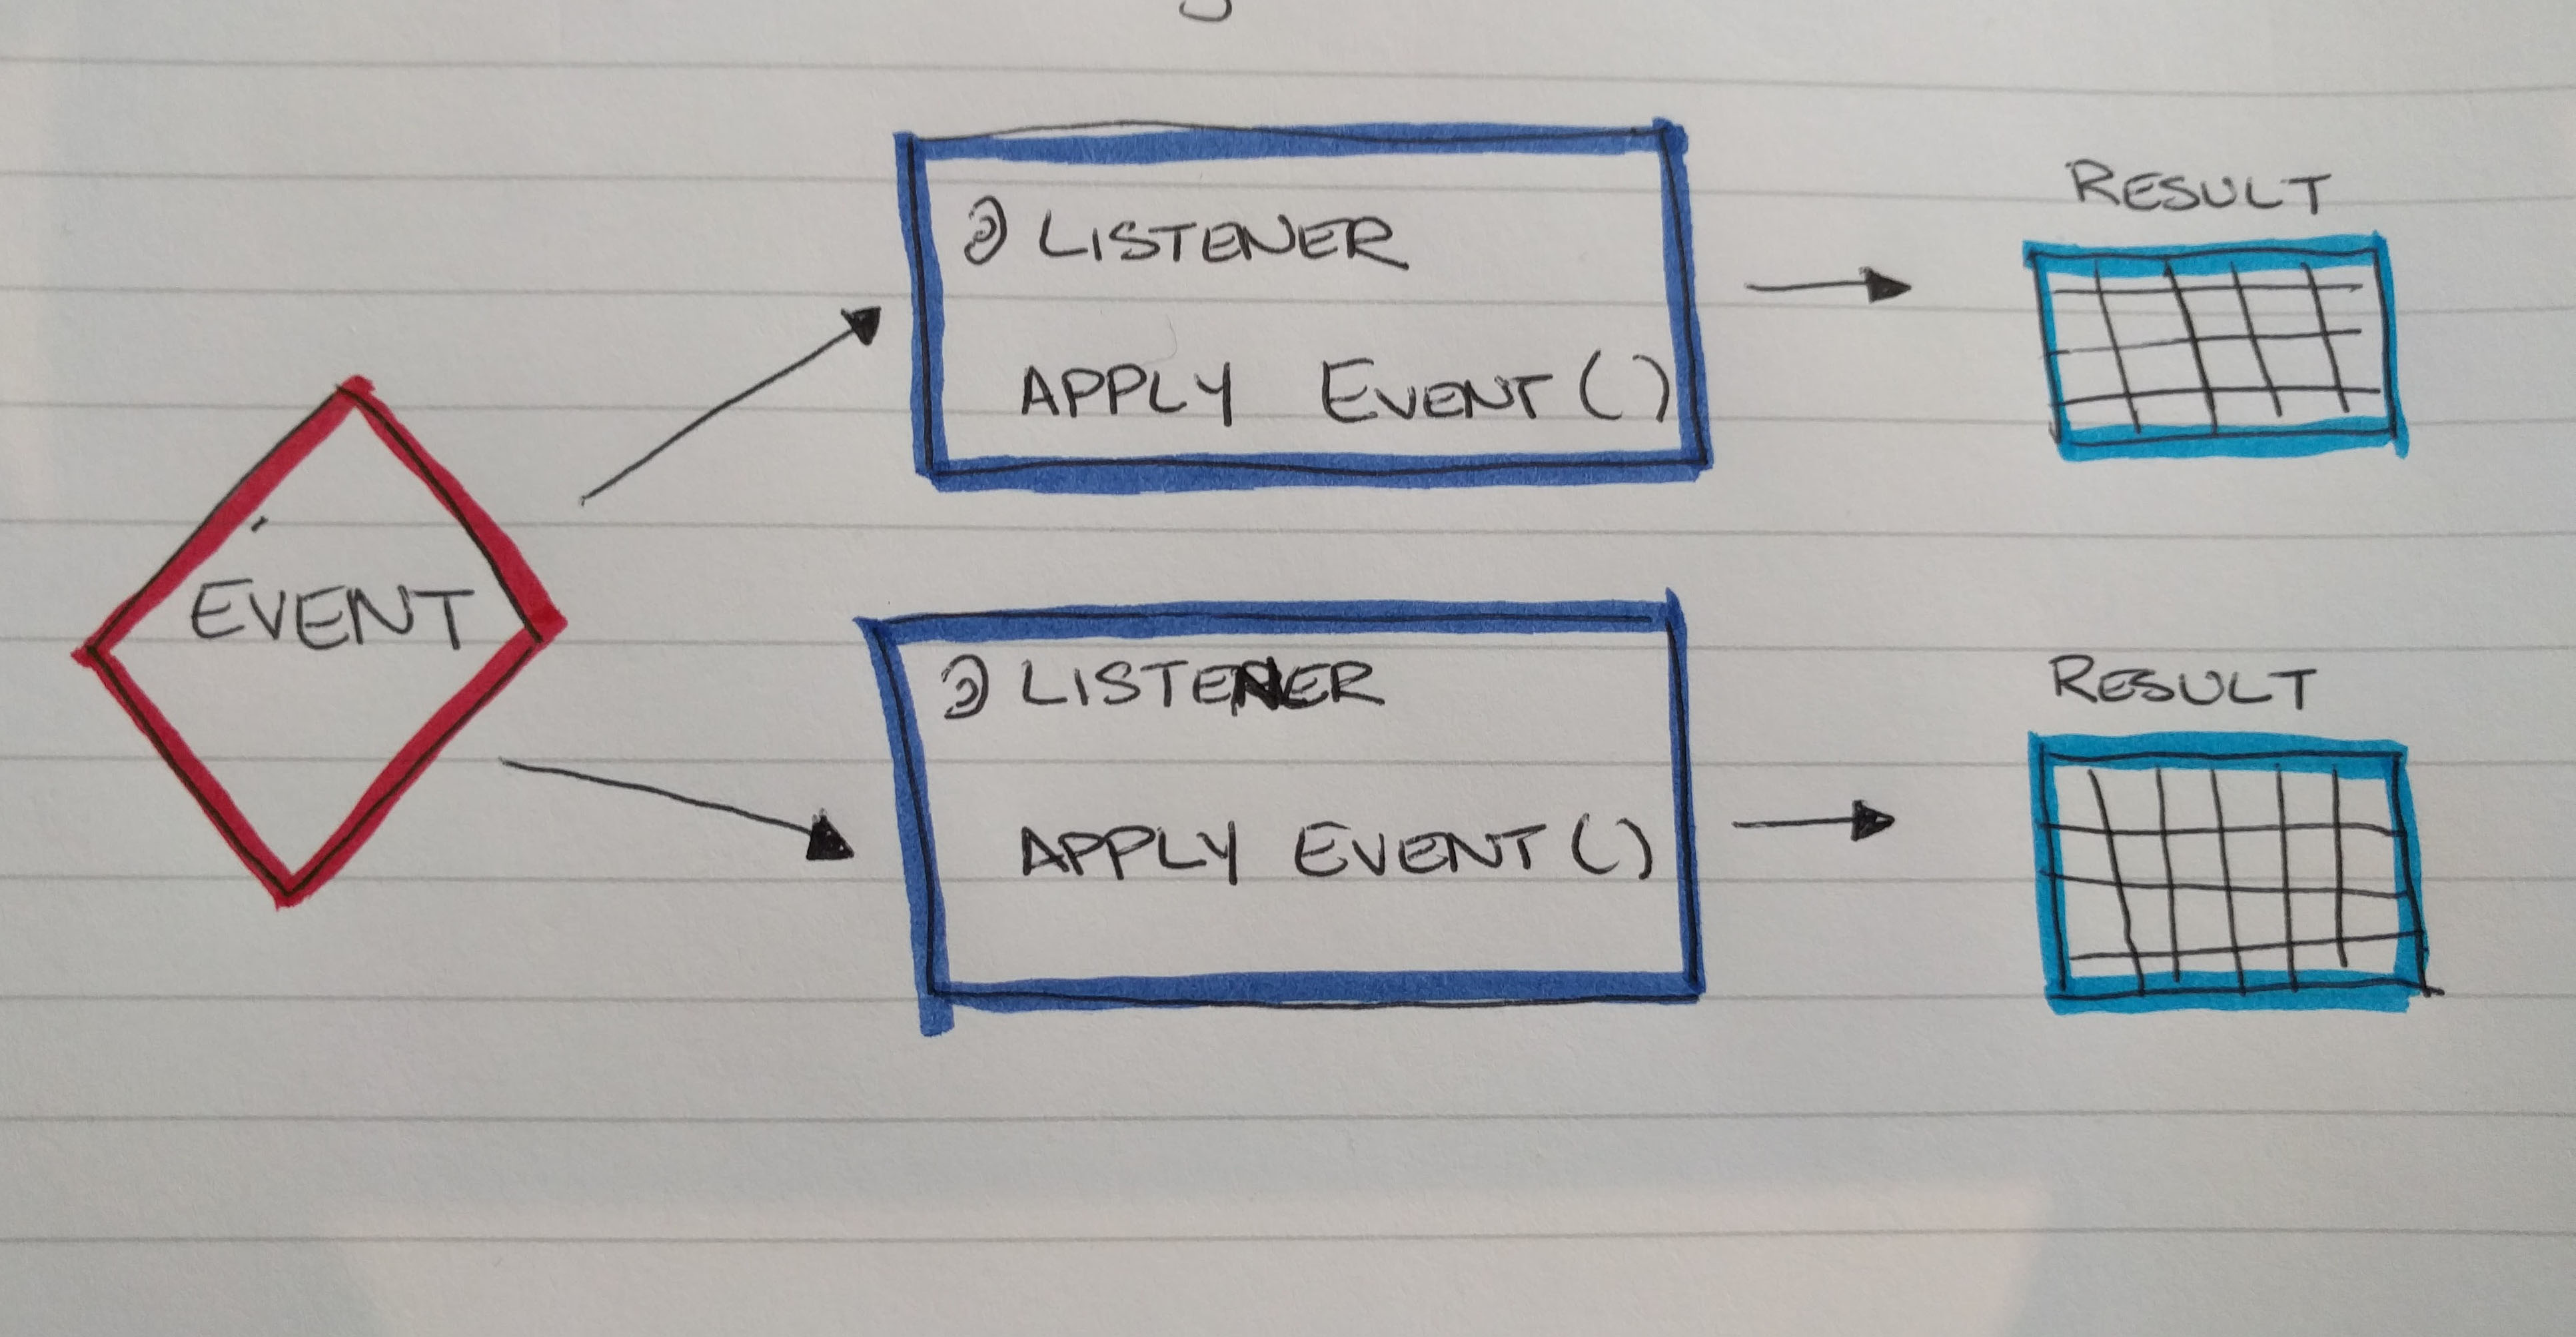 EVENT
LISTENER
APPLY EVENT()
RESULT
LISTENER
APPLY EVENT()
RESULT